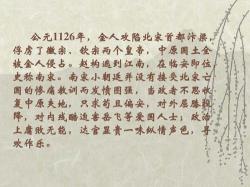 公元1126年，金人攻陷北宋首都汴梁，
俘虏了徽宗、钦宗两个皇帝，中原国土全
被金人侵占。赵构逃到江南，在临安即位
史称南宋。南宋小朝廷并没有接受北宋亡
国的惨痛教训而发愤图强，当政者不思收
复中原失地，只求苟且偏安，对外屈膝投
降，对内残酷迫害岳飞等爱国人士；政治
上腐败无能，达官显贵一味纵情声色，寻
欢作乐。